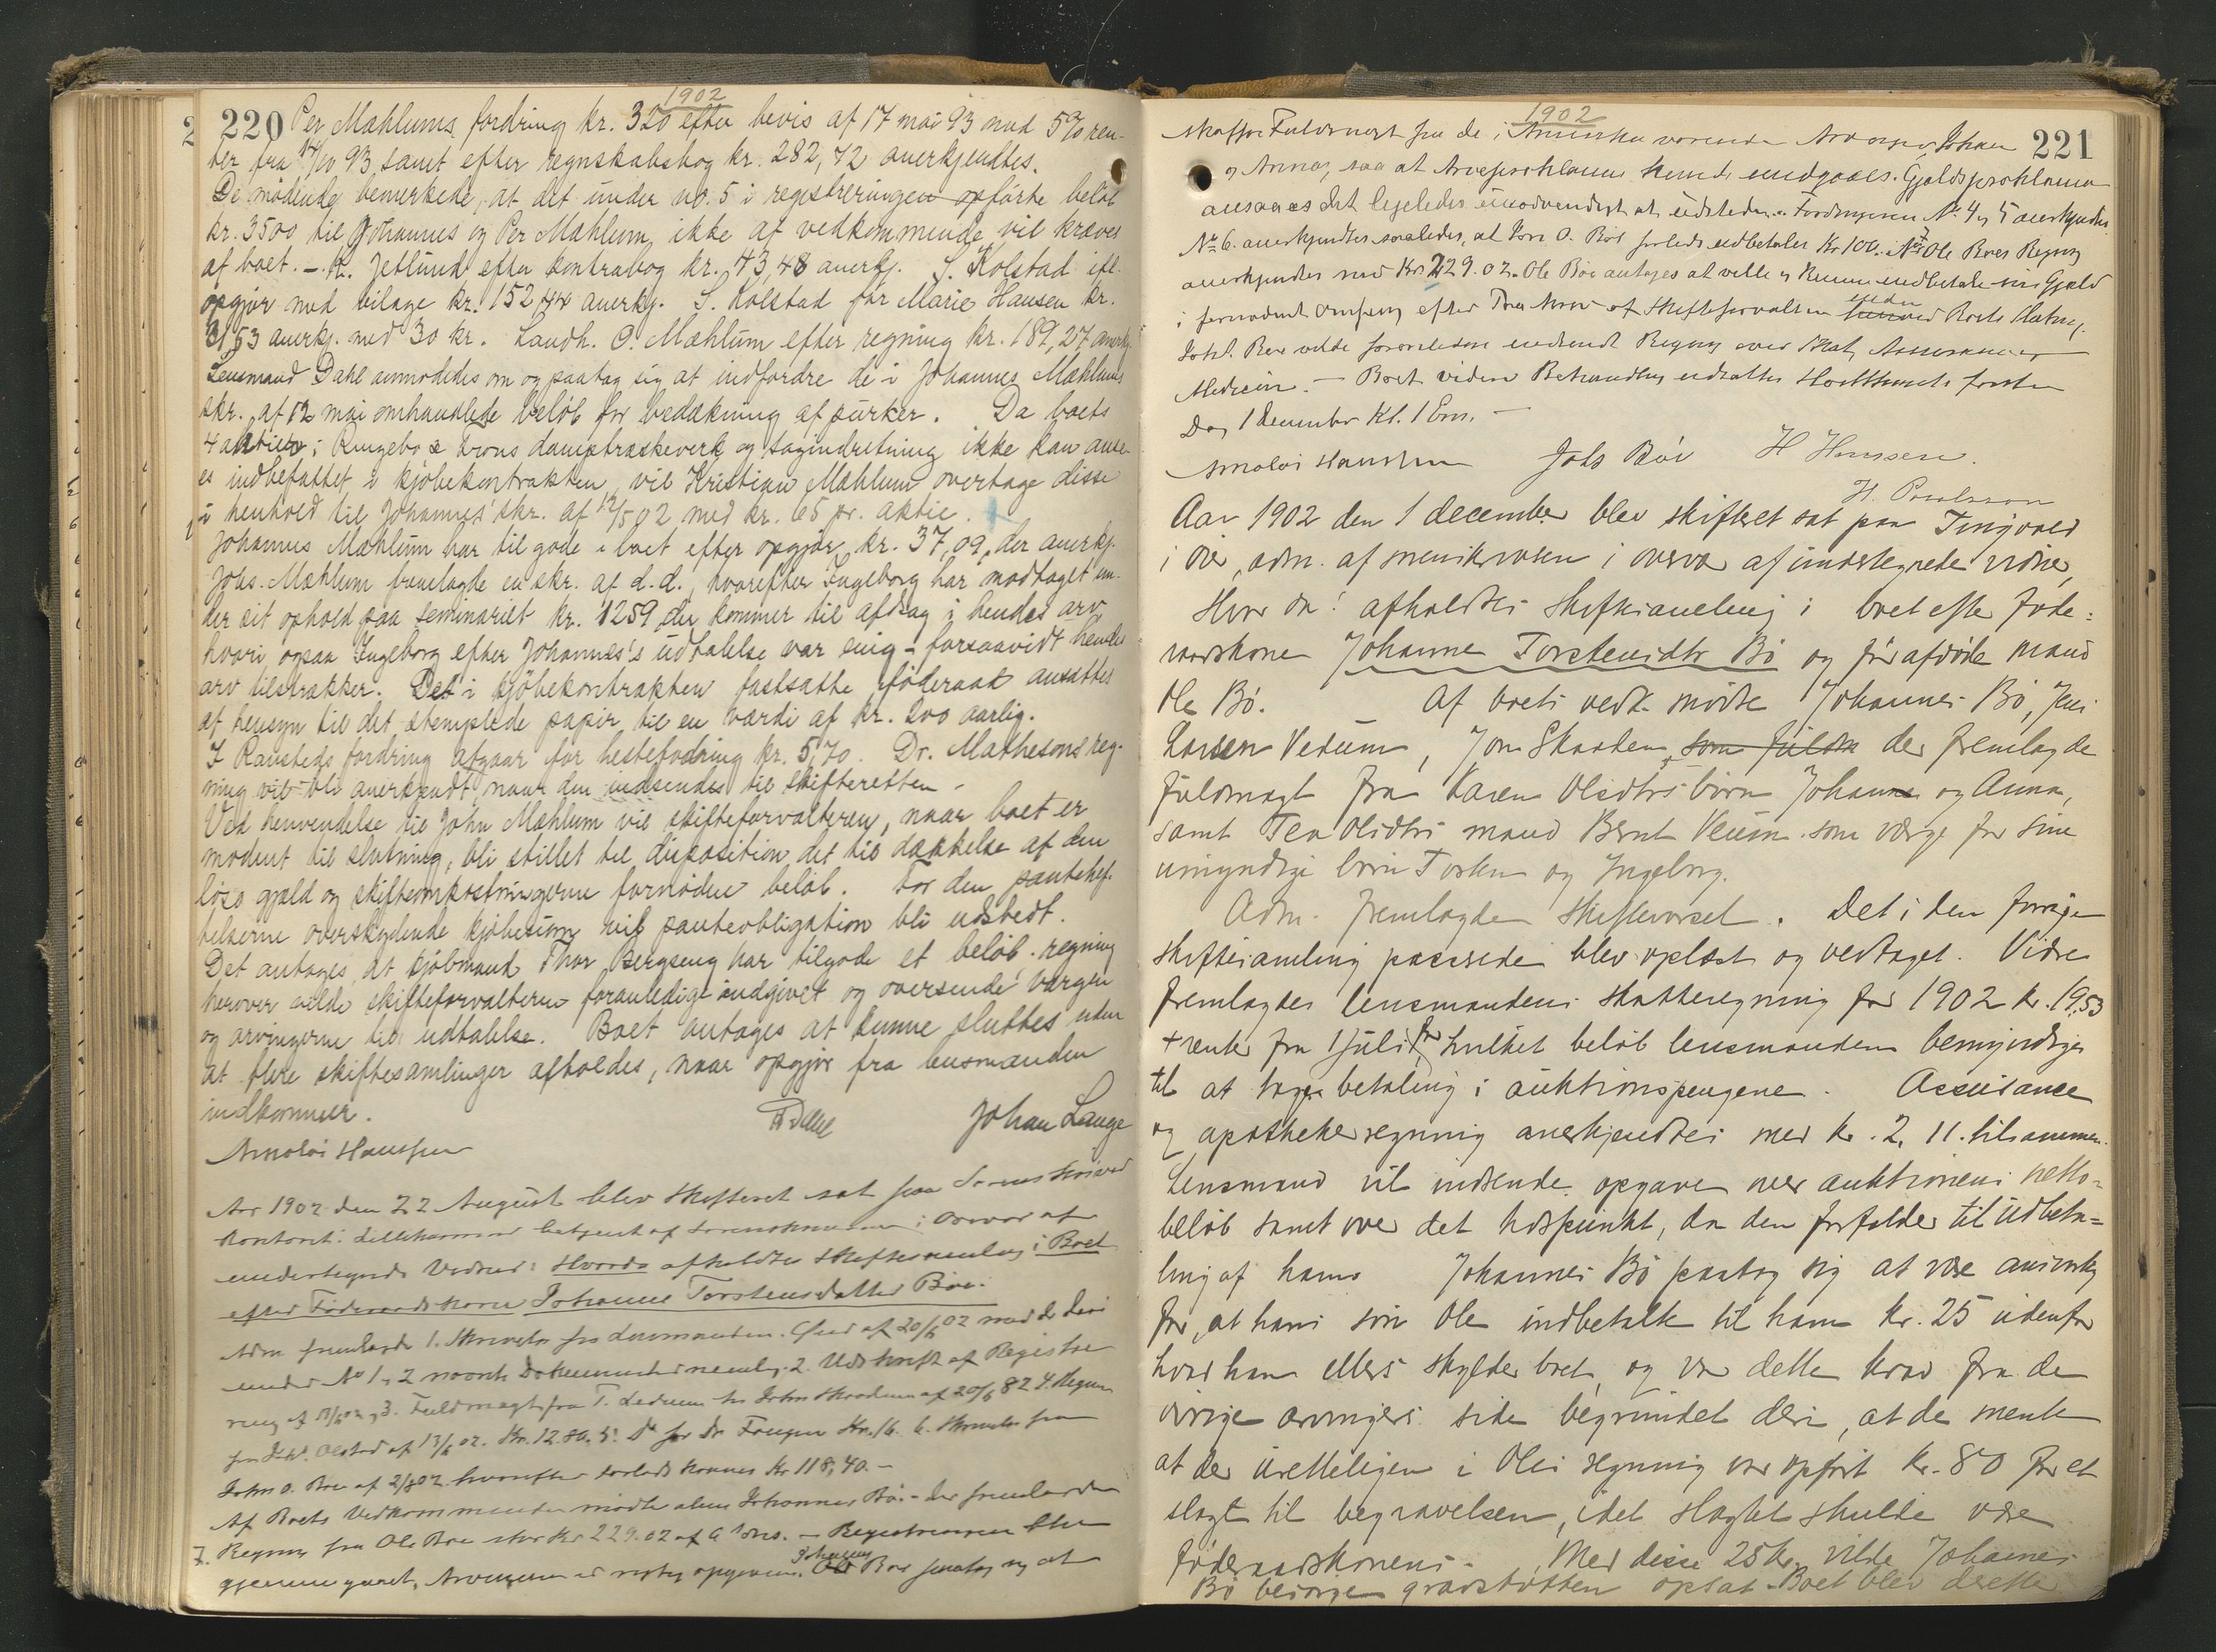 220
1902
Per Mæhlums fordring kr. 320 efter bevis af 17 mai 93 med 5% ren-
ter fra 14/10 93 samt efter regnskabsbog kr. 282,72 anerkjendtes.
De mødende bemerkede, at det under no. 5 i registreringen opførte beløb
kr. 3500 til Johannes og Per Mæhlum, ikke af vedkommende vil kræves
af boet. – K. Jetlund efter kontrabog kr. 43,48 anerkj. S. Kolstad ifl.
opgjør med bilage kr. 152,44 anerkj. S. Kolstad for Marie Hansen kr.
31,53 anerkj. med 30 kr. Landh. O. Mæhlum efter regning kr. 189,27 anerkj.
Lensmand Dahl anmodedes om og paatog sig at indfordre de i Johannes Mæhlums
skr. af 12 mai omhandlede beløb for bedækning af purker. Da boets
4 aktier i Ringebo & Frons damptræskeverk og sagindretning ikke kan anse-
es indbefattet i kjøbekontrakten, vil Kristian Mæhlum overtage disse
i henhold til Johannes' skr. af 12/5 02 med kr. 65 pr. aktie.
Johannes Mæhlum har tilgode i boet efter opgjør kr. 37,09, der anerkj.
Johs. Mæhlum fremlagde en skr. af d.d., hvorefter Ingeborg har modtaget un-
der sit ophold paa seminariet kr. 1259, der kommer til afdrag i hendes arv,
hvori ogsaa Ingeborg efter Johannes's udtalelse var enig – forsaavidt hendes
arv tilstrækker. Det i kjøbekontrakten fastsatte føderaad ansattes
af hensyn til det stemplede papir til en værdi af kr. 200 aarlig.
I Ransteds fordring afgaar for hestefodring kr. 5,70. Dr. Mathesons reg-
ning vil bli anerkjendt, naar den indsendes til skifteretten. –
Ved henvendelse til John Mæhlum vil skifteforvalteren, naar boet er
modent til slutning, bli stillet til disposition det til dækkelse af den
løse gjæld og skifteomkostningerne fornødne beløb. For den pantehef-
telserne overskydende kjøbesum vil panteobligation bli udstedt.
Det antages, at kjøbmand Thor Bergseng har tilgode et beløb. regning
herover vilde skifteforvalteren foranledige indgivet og oversende værgen
og arvingerne til udtalelse. Boet antages at kunne sluttes uden
at flere skiftesamlinger afholdes, naar opgjør fra lensmanden
indkommer.
Johan Lange
Arnoldi Hanssen
Aar 1902 den 22 August blev Skifteret sat paa Sorenskriver
Kontoret i Lillehammer betjent af Sorenskriveren i Overvær af
undertegnede Vidner: Hvorda afholdtes Skiftesamling i Boet
efter Føderaadskone Johanne Torstensdatter Bøe.
Adm. fremlagde 1. Skrivelse fra Lensmanden i Øier af 20/6 02 med de deri
under No 1 og 2 nævnte Dokumenter nemlig 2. Udskrift af Registre-
ring af og 3. Fuldmagt fra T. Vedum til John Skaaden af 20/6 82 4. Regning
fra Olstad af 13/6 02. Kr. 12.80. 5. Do for Dr. Kr. 16. 6. Skrivelse fra
John O. Bøe af 2/8 02 hvorefter kræves Kr 118,40. –
Af Boets Vedkommende mødte alene Johannes Bø. – der fremlagde
7. Regning fra Ole Bøe stor Kr 229.02 af – Registreringen blev
gjennemgaaet, Arvingerne er rigtig opgivne. Johannes Bøe paatog sig at
221
1902
skaffe Fuldmagt fra de i Amerika værende Arvinger, Johan
og Anna, saa at Arveproklama kunde undgaaes. Gjældsproklama
ansaaes det ligeledes unødvendigt at udstede. Fordringerne No 4 og 5 anerkjendtes.
No 6. anerkjendtes saaledes, at Jon O. Bøe udbetales Kr 100. No 7 Ole Bøes Regning
anerkjendtes med Kr 229.02. Ole Bøe antages at ville og kunne indbetale sin Gjæld
i fornødent Omfang efter af Skifteforvalteren inden Boets Slutning.
Johs. Bøe vilde foranledige indsendt Regning over Skat, Assurance og
Medicin. – Boets videre Behandling udsattes til
Dag 1 December Kl. 1 Em. –
Arnoldi Hanssen Johs Bøe H Hanssen.
H. Paulsson
Aar 1902 den 1 december blev skifteret sat paa Tingvold
i Øier, adm. af sorenskriveren i overvær af undertegnede vidner,
Hvor da: afholdtes skiftesamling i boet efter føde-
raadskone Johanne Torstensdtr Bø og før afdøde mand
Ole Bø. Af boets vedk. mødte Johannes Bø, Jens
Larsen Vedum, Jon Skaaden, som fuldm der fremlagde
fuldmagt fra Karen Olsdtrs børn Johan og Anna,
samt Tea Olsdtrs mand Bernt Veum som værge for sine
umyndige børn Torsten og Ingeborg.
Adm. fremlagde skiftevarsel. Det i den forrige
skiftesamling passerede blev oplæst og vedtaget. Videre
fremlagdes lensmandens skatteregning for 1902 kr. 19,53
+ renter fra 1 juli, for hvilket beløb lensmanden bemyndiges
til at tage betaling i auktionspengene. Assurance
og apothekerregning anerkjendtes med kr. 2,11 tilsammen.
Lensmand vil indsende opgave over auktionens netto-
beløb samt over det tidspunkt, da den forfalder til udbeta-
ling af ham. Johannes Bø paatog sig at være ansvarlig
for, at hans søn Ole indbetalte til ham kr. 25 udenfor
hvad han ellers skylder boet, og var dette krav fra de
øvrige arvingers side begrundet deri, at de mente
at der urettelligen i Oles regning var opført kr. 80 for et
slagt til begravelsen, idet slagtet skulde være
føderaadskonens. – Med disse 25 kr. vilde Johannes
Bø besørge gravstøtten opsat. Boet blev derefter